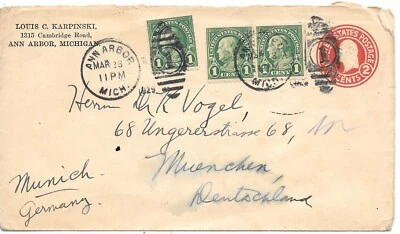 LOUIS C. KARPINSKI,
1315 Cambridge Road,
ANN ARBOR, MICHIGAN
ANN ARBOR
MAR 28
11 PM
1929
MICH.
1 CENT 1
1 CENT 1
1 CENT 1
STATES POSTAGE
2 CENTS 2
Herrn Dr K Vogel,
68 Ungererstrasse 68,
Muenchen,
Deutschland
Munich
Germany